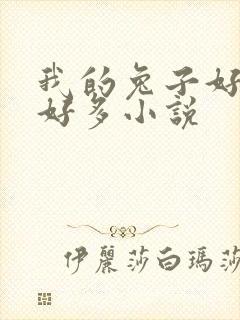 我的兔子好
好多小説
伊麗莎白瑪莎